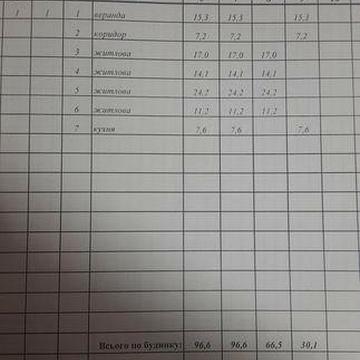 1 1 1 веранда 15,3 15,3 15,3
2 коридор 7,2 7,2 7,2
3 житлова 17,0 17,0 17,0
4 житлова 14,1 14,1 14,1
5 житлова 24,2 24,2 24,2
6 житлова 11,2 11,2 11,2
7 кухня 7,6 7,6 7,6
Всього по будинку: 96,6 96,6 66,5 30,1